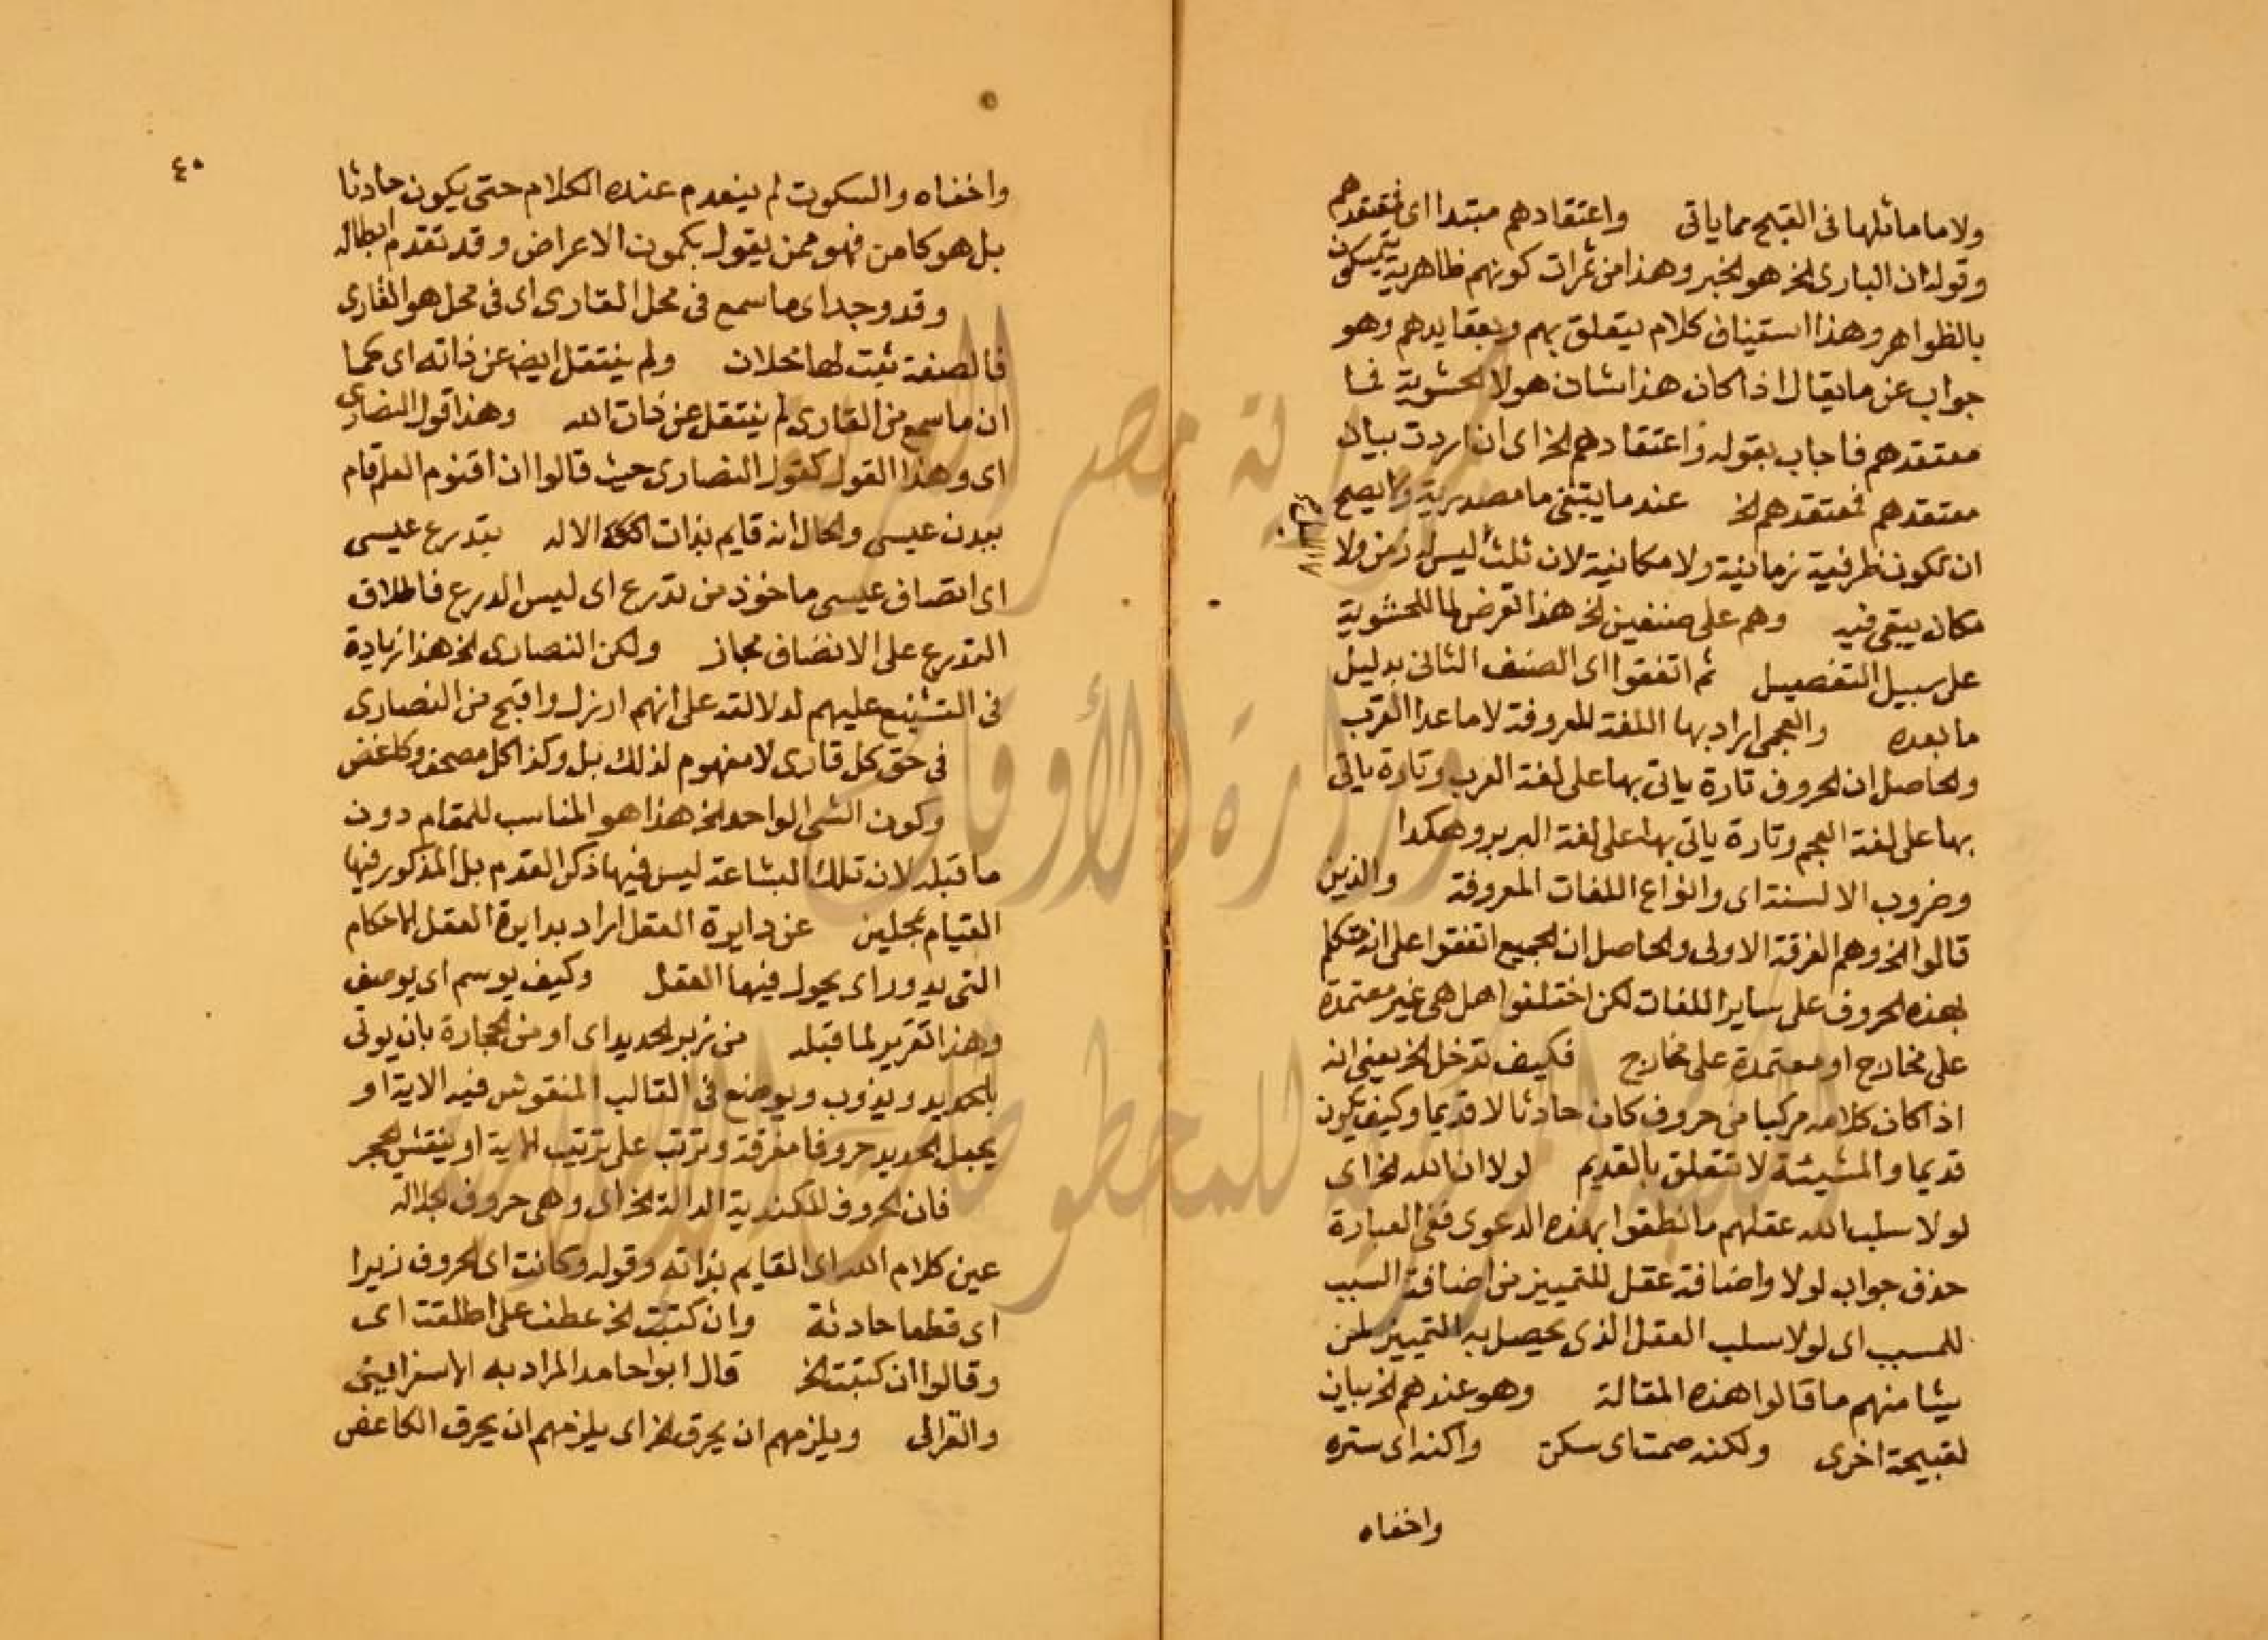 ولا ما ماثلها فى القبح مما ياتى واعتقادهم مبتدا اى فمعتقدهم
وقوله ان البارى الخ هو الخبر وهذا من ثمرات كونهم ظاهرية يتمسكون
بالظواهر وهذا استيناف كلام يتعلق بهم وبعقايدهم وهو
جواب عن ما يقال اذا كان هذا شان هولا الحشوية فما
معتقدهم فاجاب بقوله واعتقادهم الخ اى ان اردت بيان
معتقدهم فمعتقدهم الخ عند ما يبتغى ما مصدرية ولا يصح
ان تكون ظرفية زمانية ولا مكانية لان ثلث ليس له زمن ولا
مكان يبتغى فيه وهم على صنفين الخ هذا تعرض لما للحشوية
على سبيل التفصيل ثم اتفقوا اى الصنف الثانى بدليل
ما بعده والعجمى اراد بها اللغة المعروفة لا ما عدا العرب
والحاصل ان الحروف تارة ياتى بها على لغة العرب وتارة ياتى
بها على لغة العجم وتارة ياتى بها على لغة البربر وهكدا
وضروب الالسنة اى وانواع اللغات المعروفة والذين
قالوا الخ وهم الفرقة الاولى والحاصل ان الجميع اتفقوا على انه متكلم
بهذه الحروف على ساير اللغات لكن اختلفوا هل هى غير معتمدة
على مخارج او معتمدة على مخارج فكيف تدخل الخ يعنى انه
اذا كان كلامه مركبا من حروف كان حادثا لا قديما وكيف يكون
قديما والمشيئة لا تتعلق بالقديم لولا ان الله الخ اى
لولا سلب الله عقلهم ما نطقوا بهذه الدعوى ففى العبارة
حذف جواب لولا واضافة عقل للتمييز من اضافة السبب
للمسبب اى لولا سلب العقل الذى يحصل به التمييز لمن
يشا منهم ما قالوا هذه المقالة وهو عندهم الخ بيان
لقبيحة اخرى ولكنه صمت اى سكت واكنه اى ستره
واخفاه
٤٠
واخفاه والسكوت لم ينعدم عنده الكلام حتى يكون حادثا
بل هو كامن فهو ممن يقول بكمون الاعراض وقد تقدم ابطاله
وقد وجد اى ما سمع فى محل القارى اى فى محل هو القارى
فالصفة ثبت لها محلان ولم ينتقل ايضا عن ذاته اى كما
ان ما سمع من القارى لم ينتقل عن ذات الله وهذا قول النصارى
اى وهذا القول كقول النصارى حيث قالوا ان اقنوم العلم قام
ببدن عيسى والحال انه قايم بذات الاله بتدرع عيسى
اى اتصاف عيسى ماخوذ من تدرع اى لبس الدرع فاطلاق
التدرع على الاتصاف مجاز ولكن النصارى الخ هذا زيادة
فى التشنيع عليهم لدلالته على انهم ارذل واقبح من النصارى
فى حق كل قارى لا مفهوم لذلك بل وكذا كل مصحف وكاغض
وكون الشى الواحد الخ هذا هو المناسب للمقام دون
ما قبله لان تلك البشاعة ليس فيها ذكر القدم بل المذكور فيها
القيام بمحلين عن دايرة العقل اراد بدايرة العقل الاحكام
التى يدور اى يجول فيها العقل وكيف يوسم اى يوصف
وهذا تقرير لما قبله من زبر الحديد اى او من الحجارة بان يوتى
بالحديد ويذوب ويوضع فى القالب المنقوش فيه الاية او
يجعل الحديد حروفا مفرقة وترتب على ترتيب الاية او ينقش الحجر
فان الحروف الدالة الخ اى وهى حروف الجلالة
عين كلام الله اى القايم بذاته وقوله وكانت اى الحروف زبرا
اى قطعا حادثة وان كتبت الخ عطف على اطلقت اى
وقالوا ان كتبت الخ قال ابو احامد المراد به الاسفراينى
والغزالى ويلزمهم ان يحرق الخ اى يلزمهم ان يحرق الكاغض